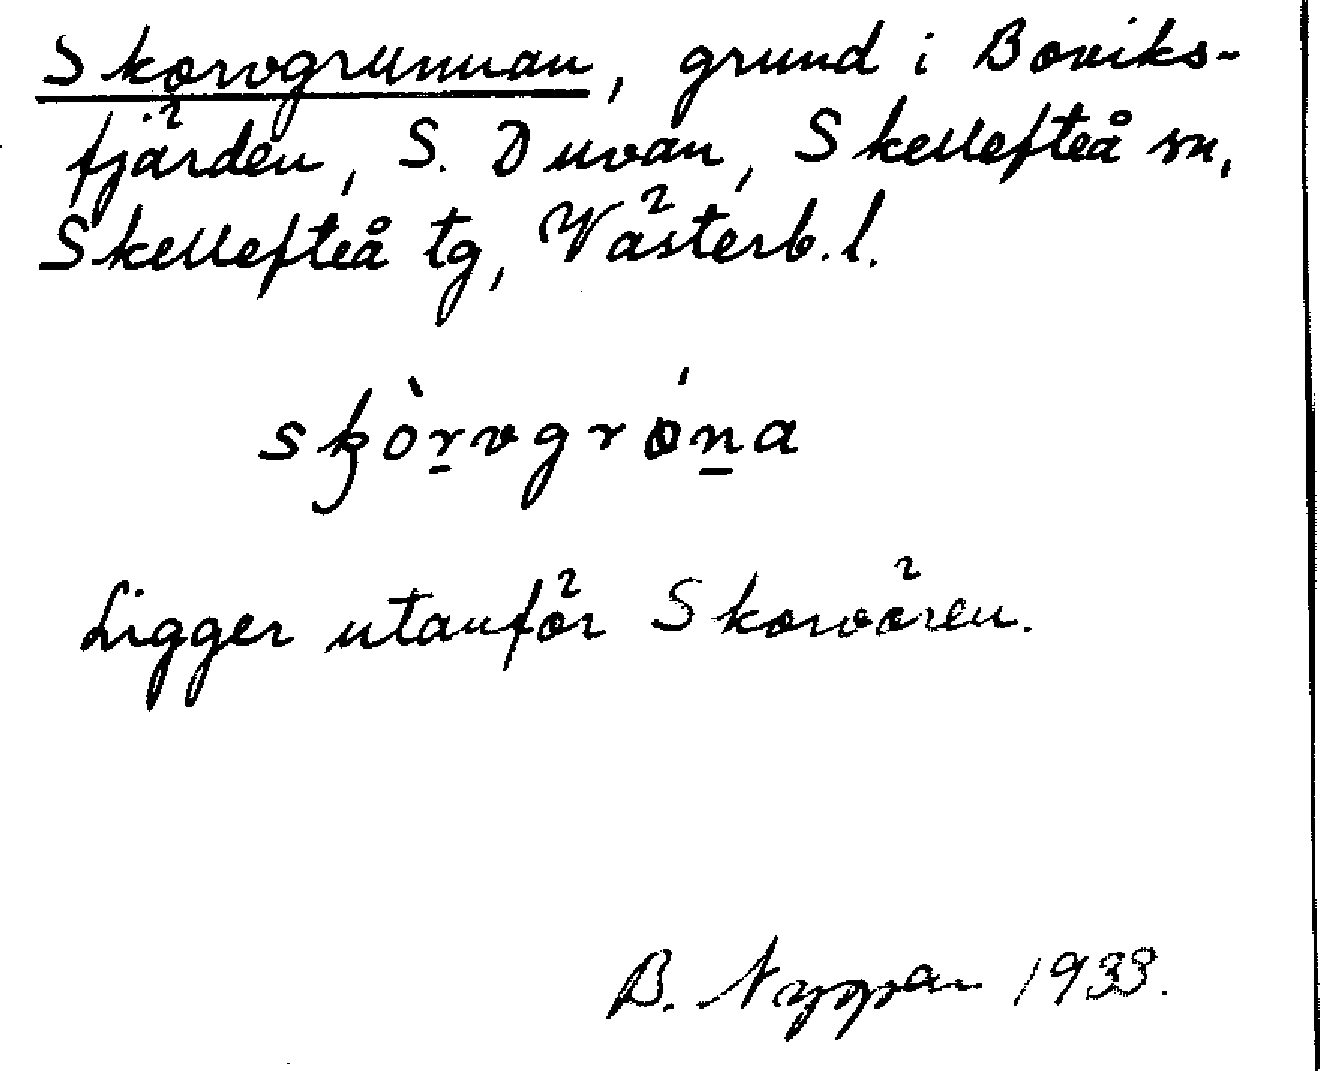 Skorvgrunnan, grund i Boviks-
fjärden, S. Duvan, Skellefteå sn,
Skellefteå tg, Västerb. l.
skòr̲vgrón̲a
Ligger utanför Skorvören.
B. Nyman 1933.